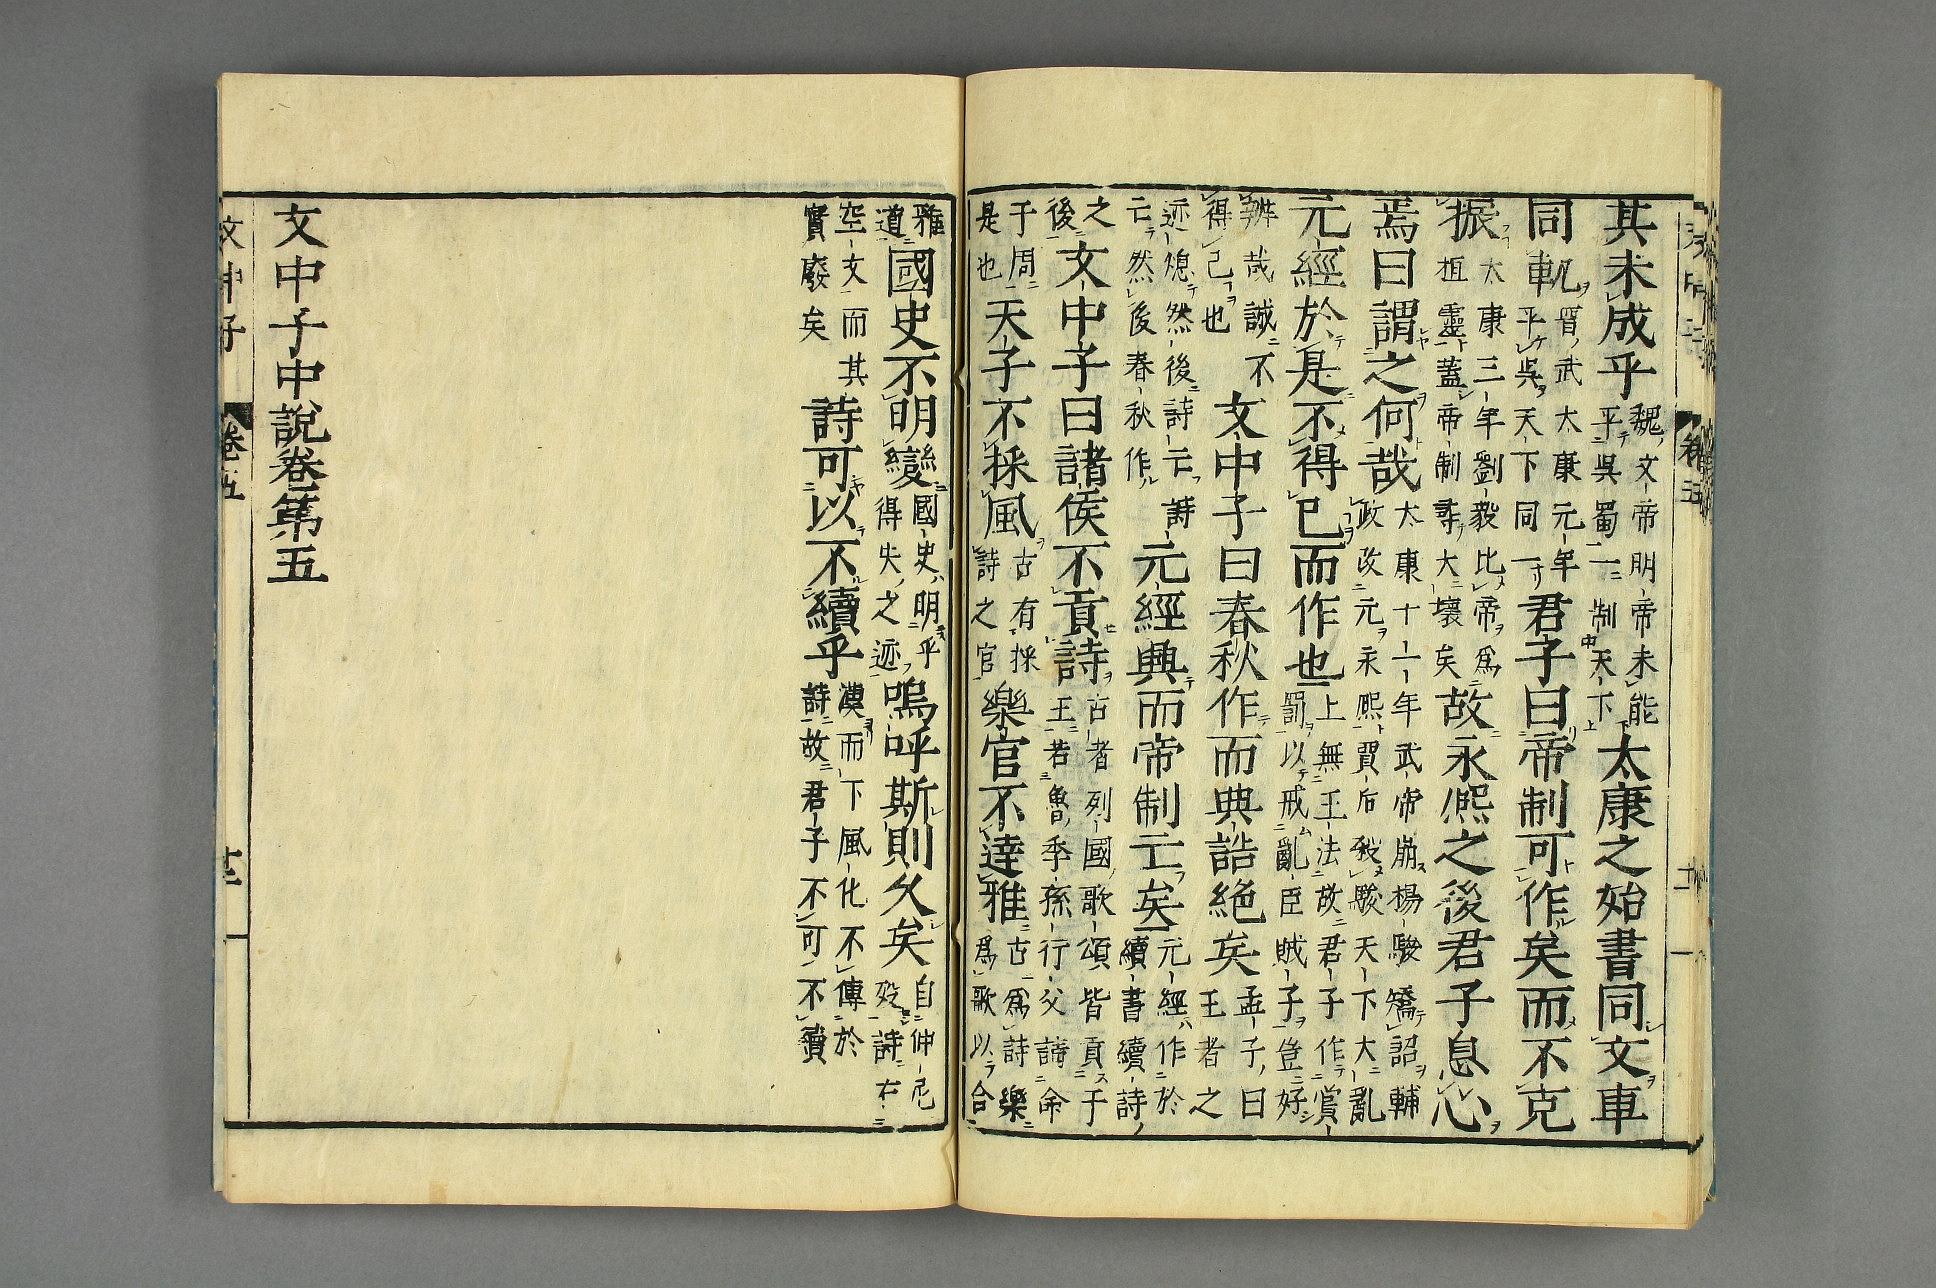 文中子 卷五 十一
其未成乎魏文帝明帝未能平吳蜀一制天下太康之始書同文車
同軌晋武太康元年平吳天下同一君子曰帝制可作矣而不克
振太康三年劉毅比帝爲桓靈蓋帝制尋大壞矣故永熙之後君子息心
焉曰謂之何哉太康十一年武帝崩楊駿矯詔輔政改元永熙賈后殺駿天下大亂
元經於是不得已而作也上無王法故君子作賞罰以戒亂臣賊子豈好
辨哉誠不得已也文中子曰春秋作而典誥絶矣孟子曰王者之
迹熄然後詩亡詩亡然後春秋作元經興而帝制亡矣元經作於續書續詩
之後文中子曰諸侯不貢詩古者列國歌頌皆貢于王若魯季孫行父請命
于周是也天子不採風古有採詩之官樂官不達雅古爲詩樂爲歌以合
雅道國史不明變國史明乎得失之迹嗚呼斯則久矣自仲尼歿詩右
空文而其實廢矣詩可以不續乎漢而下風化不傳於詩故君子不可不續
文中子中說卷第五
文中子 卷五 十二